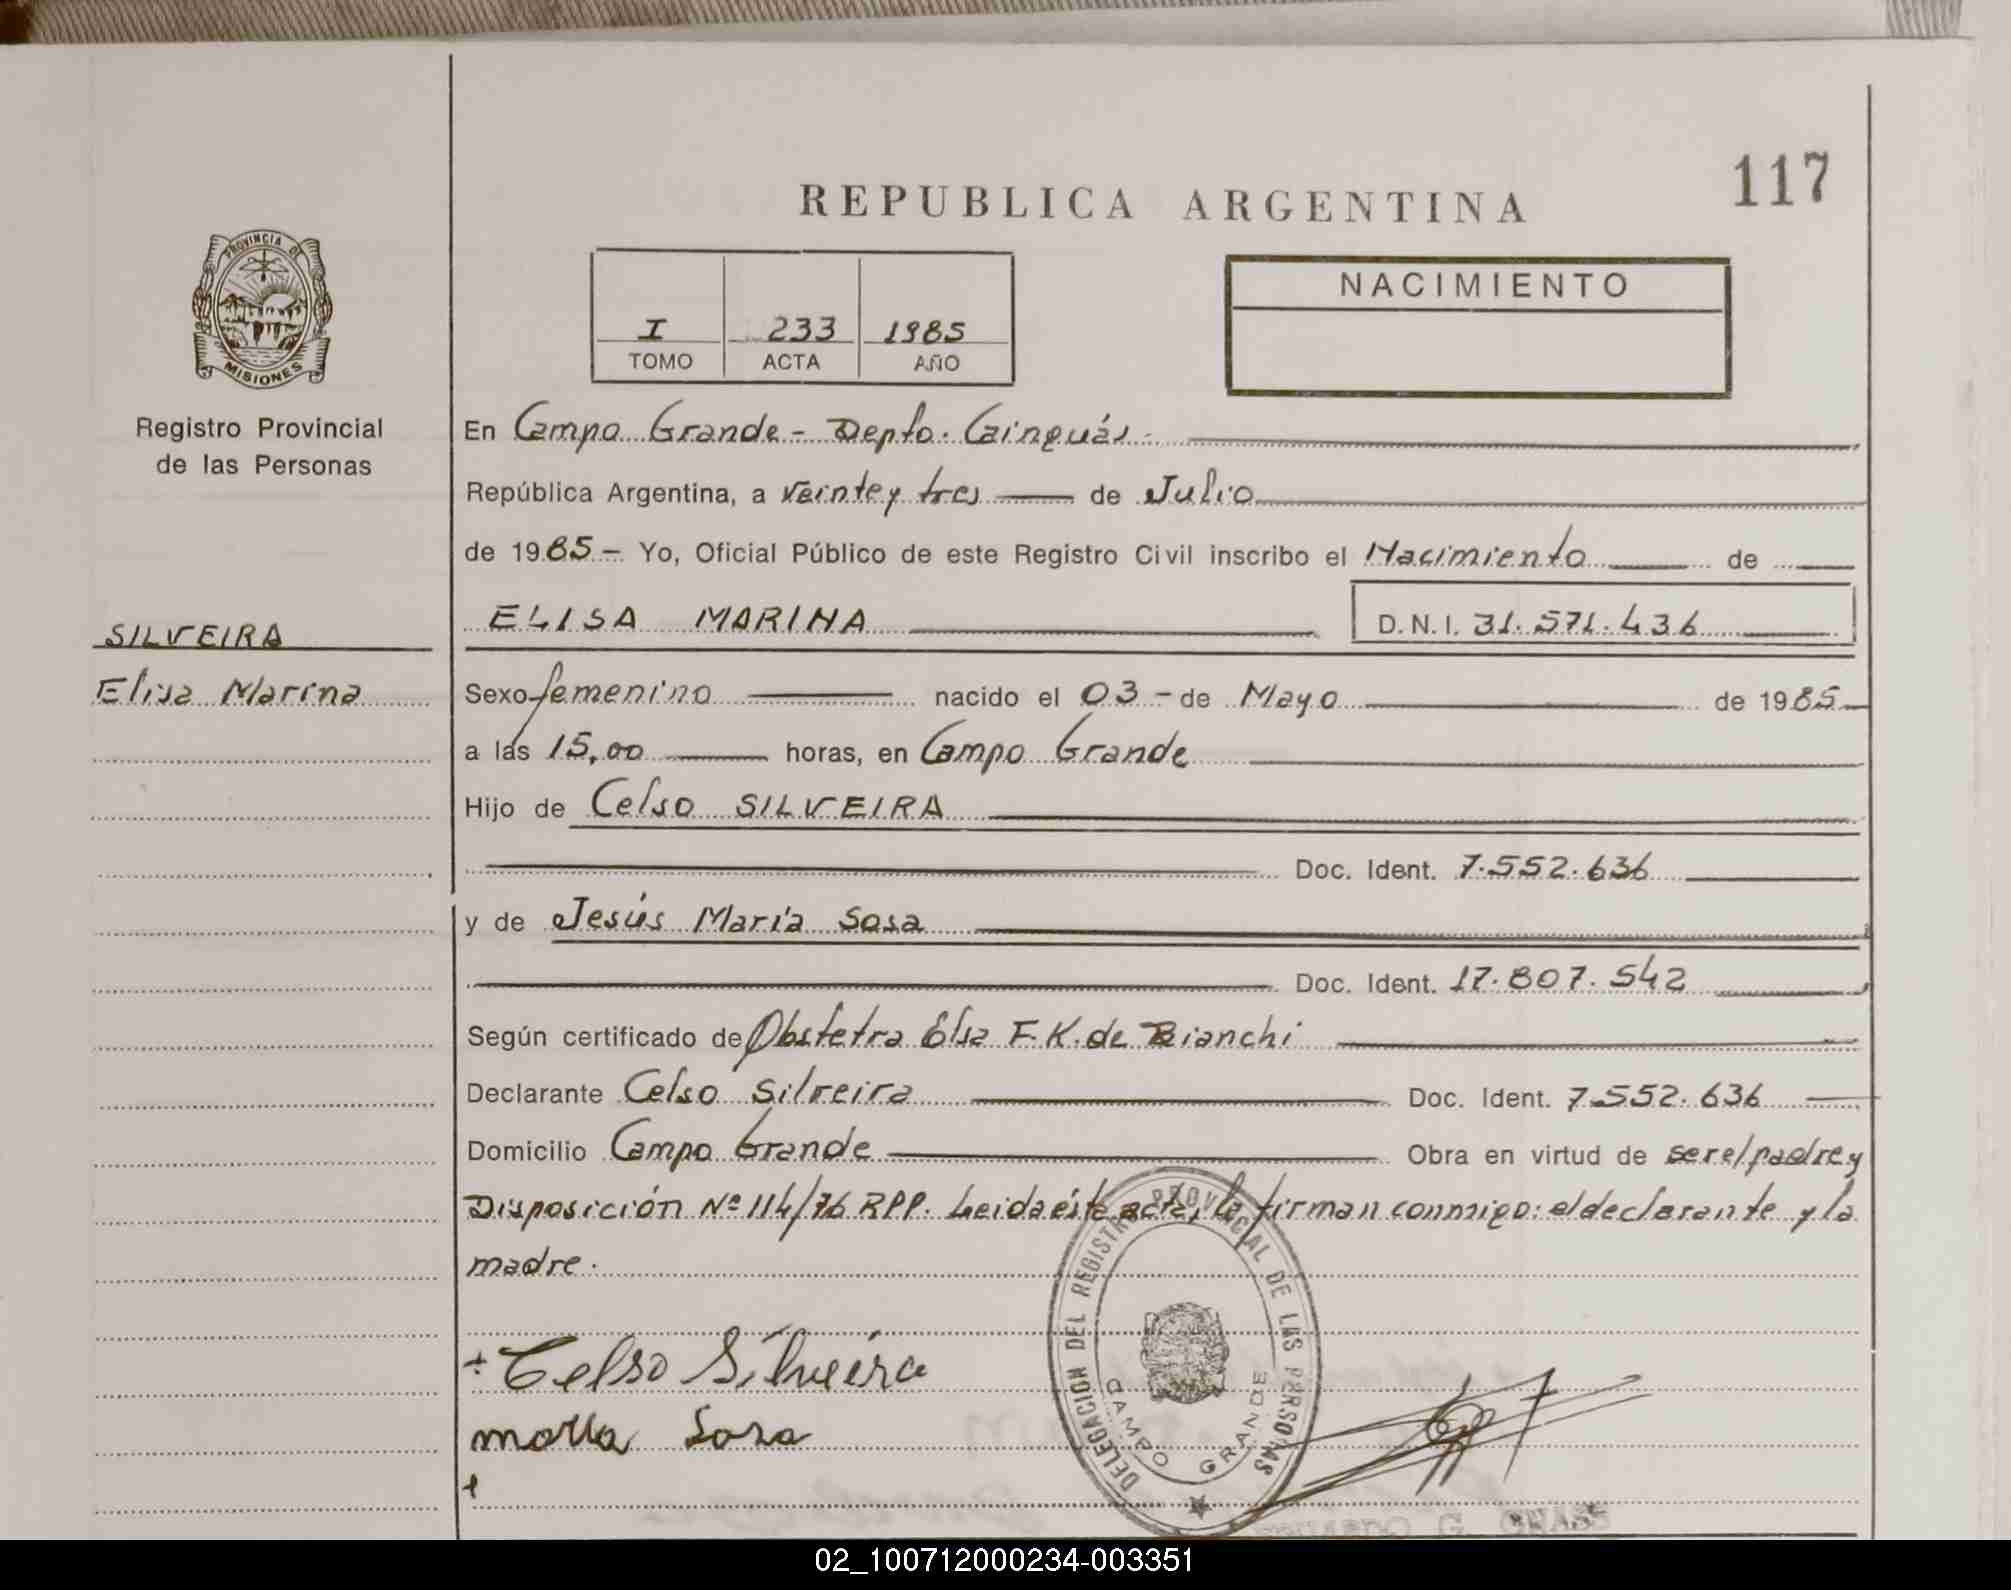 117
REPUBLICA ARGENTINA
PROVINCIA DE
MISIONES
Registro Provincial
de las Personas
I 233 1985
TOMO ACTA AÑO
NACIMIENTO
En Campo Grande - Depto. Cainguás.
República Argentina, a veinte y tres de Julio
de 1985 - Yo, Oficial Público de este Registro Civil inscribo el Nacimiento de
ELISA MARINA D.N.I. 31.571.436
SILVEIRA
Elisa Marina
Sexo femenino nacido el 03 - de Mayo de 1985
a las 15,00 horas, en Campo Grande
Hijo de Celso SILVEIRA
Doc. Ident. 7.552.636
y de Jesús María Sosa
Doc. Ident. 17.807.542
Según certificado de Obstetra Elsa F.K. de Bianchi
Declarante Celso Silveira Doc. Ident. 7.552.636
Domicilio Campo Grande Obra en virtud de ser el padre y
Disposición Nº 114/76 RPP. Leida ésta acta, la firman conmigo: el declarante y la
madre.
DELEGACION DEL REGISTRO PROVINCIAL DE LAS PERSONAS
CAMPO GRANDE
Celso Silveira
Sosa
02_100712000234-003351